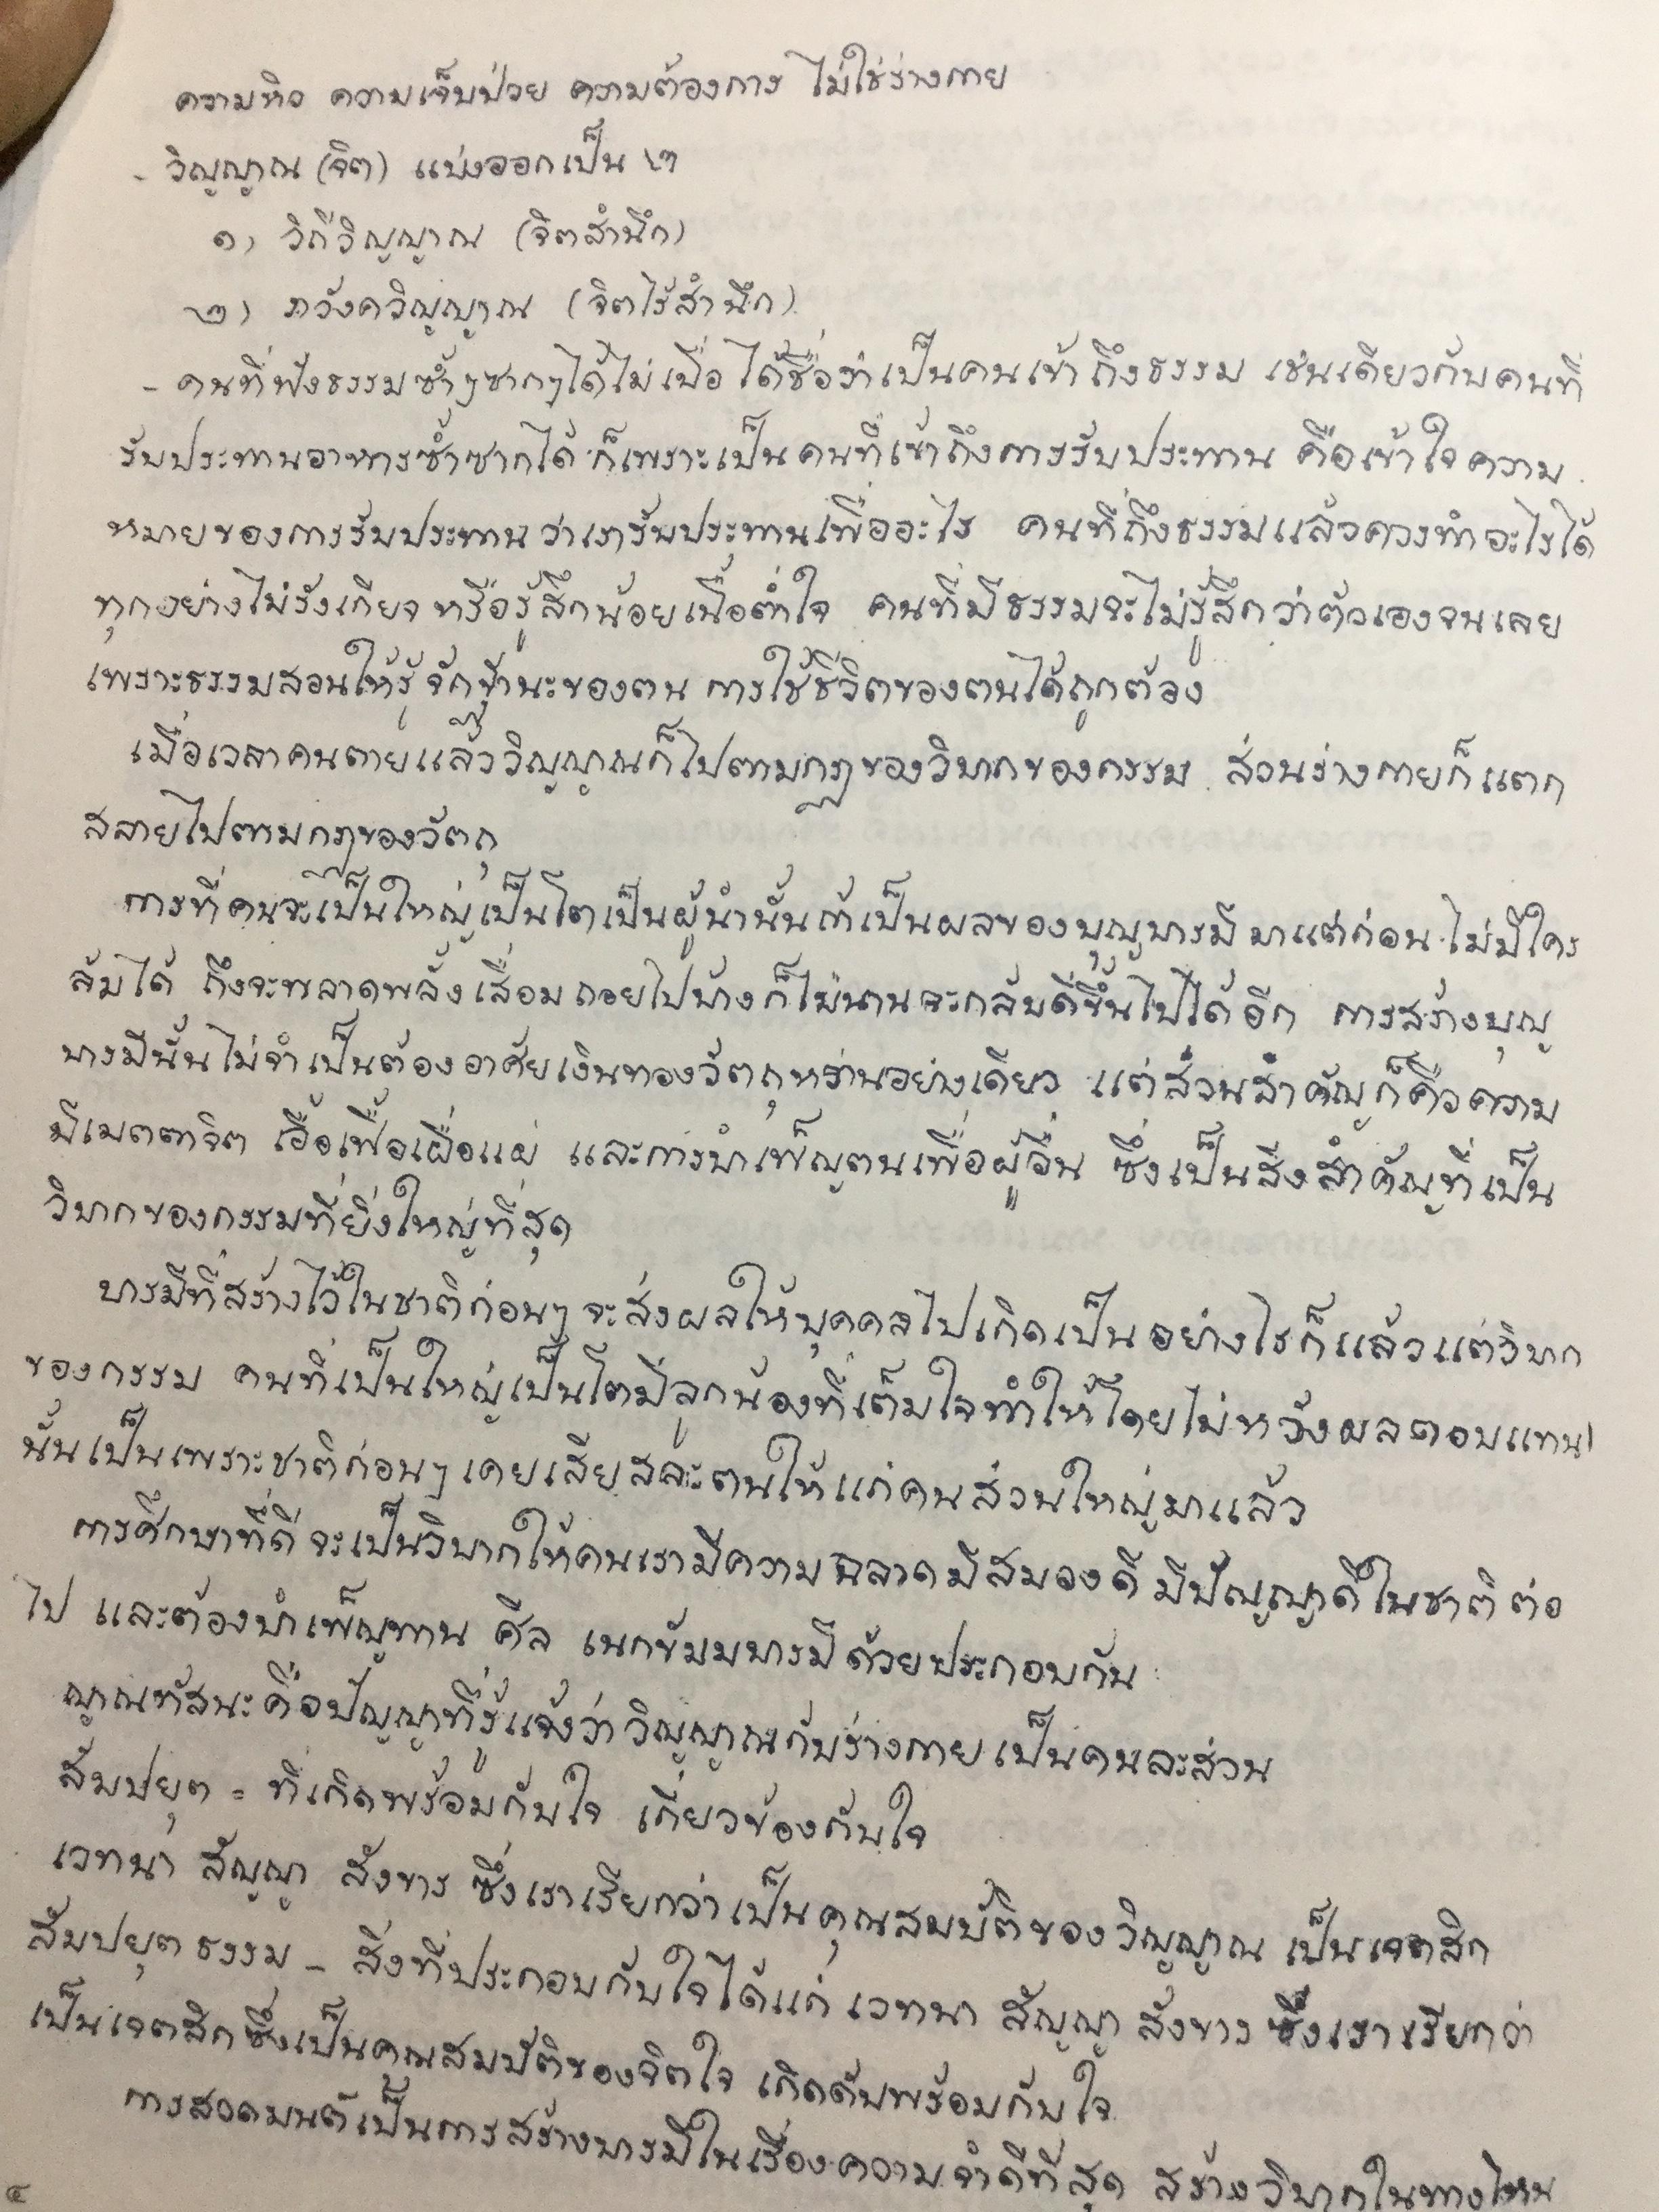 ความหิว ความเจ็บป่วย ความต้องการ ไม่ใช่ร่างกาย
- วิญญาณ (จิต) แบ่งออกเป็น ๒
๑) วิถีวิญญาณ (จิตสำนึก)
๒) ภวังควิญญาณ (จิตไร้สำนึก)
- คนที่ฟังธรรมซ้ำๆซากๆได้ไม่เบื่อ ได้ชื่อว่าเป็นคนเข้าถึงธรรม เช่นเดียวกับคนที่
รับประทานอาหารซ้ำซากได้ ก็เพราะเป็นคนที่เข้าถึงการรับประทาน คือเข้าใจความ
หมายของการรับประทานว่าเรารับประทานเพื่ออะไร คนที่ถึงธรรมแล้วควรทำอะไรได้
ทุกอย่างไม่รังเกียจ หรือรู้สึกน้อยเนื้อต่ำใจ คนที่มีธรรมจะไม่รู้สึกว่าตัวเองจนเลย
เพราะธรรมสอนให้รู้จักฐานะของตน การใช้ชีวิตของตนได้ถูกต้อง
เมื่อเวลาคนตายแล้ววิญญาณก็ไปตามกฎของวิบากของกรรม ส่วนร่างกายก็แตก
สลายไปตามกฎของวัตถุ
การที่คนจะเป็นใหญ่เป็นโตเป็นผู้นำนั้นถ้าเป็นผลของบุญบารมีมาแต่ก่อน ไม่มีใคร
ล้มได้ ถึงจะพลาดพลั้งเสื่อมถอยไปบ้างก็ไม่นานจะกลับดีขึ้นไปได้อีก การสร้างบุญ
บารมีนั้นไม่จำเป็นต้องอาศัยเงินทองวัตถุหว่านอย่างเดียว แต่ส่วนสำคัญก็คือความ
มีเมตตาจิต เอื้อเฟื้อเผื่อแผ่ และการบำเพ็ญตนเพื่อผู้อื่น ซึ่งเป็นสิ่งสำคัญที่เป็น
วิบากของกรรมที่ยิ่งใหญ่ที่สุด
บารมีที่สร้างไว้ในชาติก่อนๆ จะส่งผลให้บุคคลไปเกิดเป็นอย่างไรก็แล้วแต่วิบาก
ของกรรม คนที่เป็นใหญ่เป็นโตมีลูกน้องที่เต็มใจทำให้โดยไม่หวังผลตอบแทน
นั้นเป็นเพราะชาติก่อนๆ เคยเสียสละตนให้แก่คนส่วนใหญ่มาแล้ว
การศึกษาที่ดีจะเป็นวิบากให้คนเรามีความฉลาดมีสมองดี มีปัญญาดีในชาติต่อ
ไป และต้องบำเพ็ญทาน ศีล เนกขัมมบารมีด้วยประกอบกัน
ญาณทัสนะคือปัญญาที่รู้แจ้งว่าวิญญาณกับร่างกายเป็นคนละส่วน
สัมปยุต = ที่เกิดพร้อมกับใจ เกี่ยวข้องกับใจ
เวทนา สัญญา สังขาร ซึ่งเราเรียกว่าเป็นคุณสมบัติของวิญญาณ เป็นเจตสิก
สัมปยุตธรรม - สิ่งที่ประกอบกับใจได้แก่ เวทนา สัญญา สังขาร ซึ่งเราเรียกว่า
เป็นเจตสิกซึ่งเป็นคุณสมบัติของจิตใจ เกิดดับพร้อมกับใจ
การสวดมนต์เป็นการสร้างบารมีในเรื่องความจำดีที่สุด สร้างวิบากในทางไหน
๔